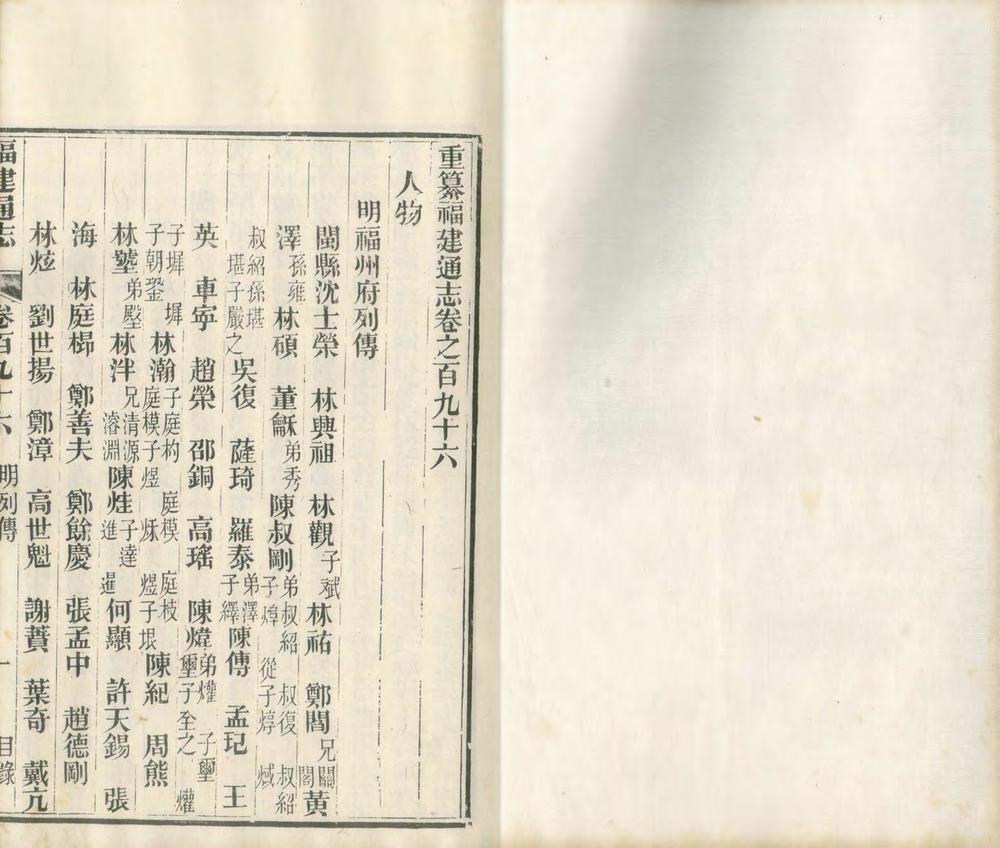 重纂福建通志卷之一百九十六
人物
明福州府列傳
閩縣沈士榮 林興祖 林觀子斌 林祐 鄭閻兄關閣 黃
澤孫雍 林碩 董龢弟秀 陳叔剛弟叔紹 叔復 叔紹子煒 從子焞 㷂
叔紹孫墀堪子嚴之 吳復 薩琦 羅泰弟澤子繹 陳傳 孟玘 王
英 車寧 趙榮 邵銅 高瑤 陳煒弟爟 子璽璽子全之 爟
子墀 墀子朝鋈 林瀚子庭㭿 庭模 庭枝庭模子煜 烌 煜子垠 陳紀 周熊
林墪弟壂 林泮兄清源濬淵 陳烓子達進 暹 何顯 許天錫 張
海 林庭㭿 鄭善夫 鄭餘慶 張孟中 趙德剛
林炫 劉世揚 鄭漳 高世魁 謝蕡 葉奇 戴亢
福建通志 卷百九十六 明列傳 一 目錄